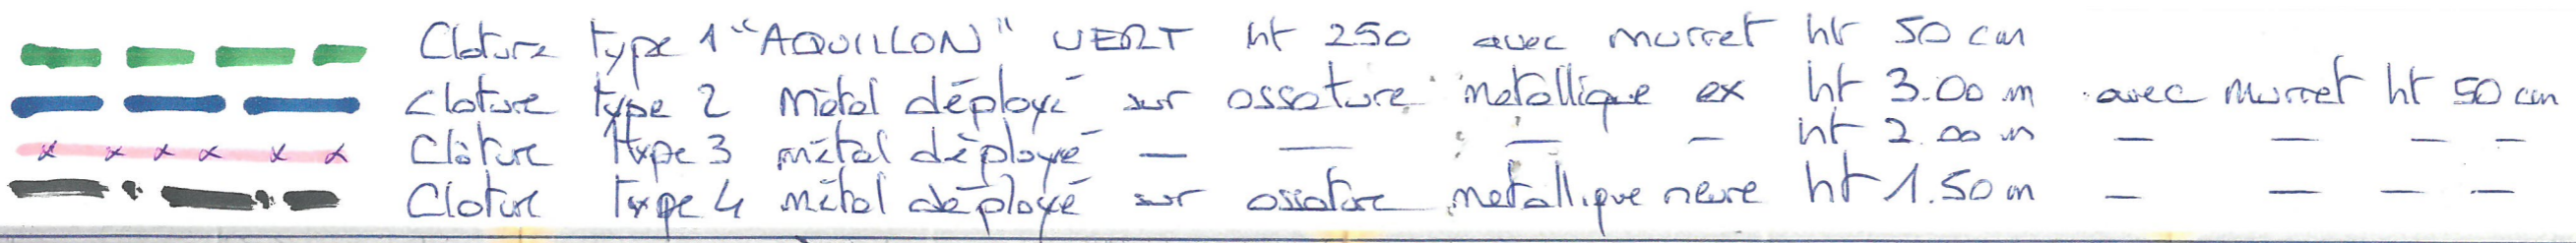 Cloture type 1 "AQUILLON" VERT ht 250 avec murret ht 50 cm
cloture type 2 métal déployé sur ossature metallique ex ht 3.00 m avec murret ht 50 cm
Clôture type 3 métal déployé — — — — ht 2.00 m — — — —
Cloture type 4 métal déployé sur ossature metallique neuve ht 1.50 m — — — —